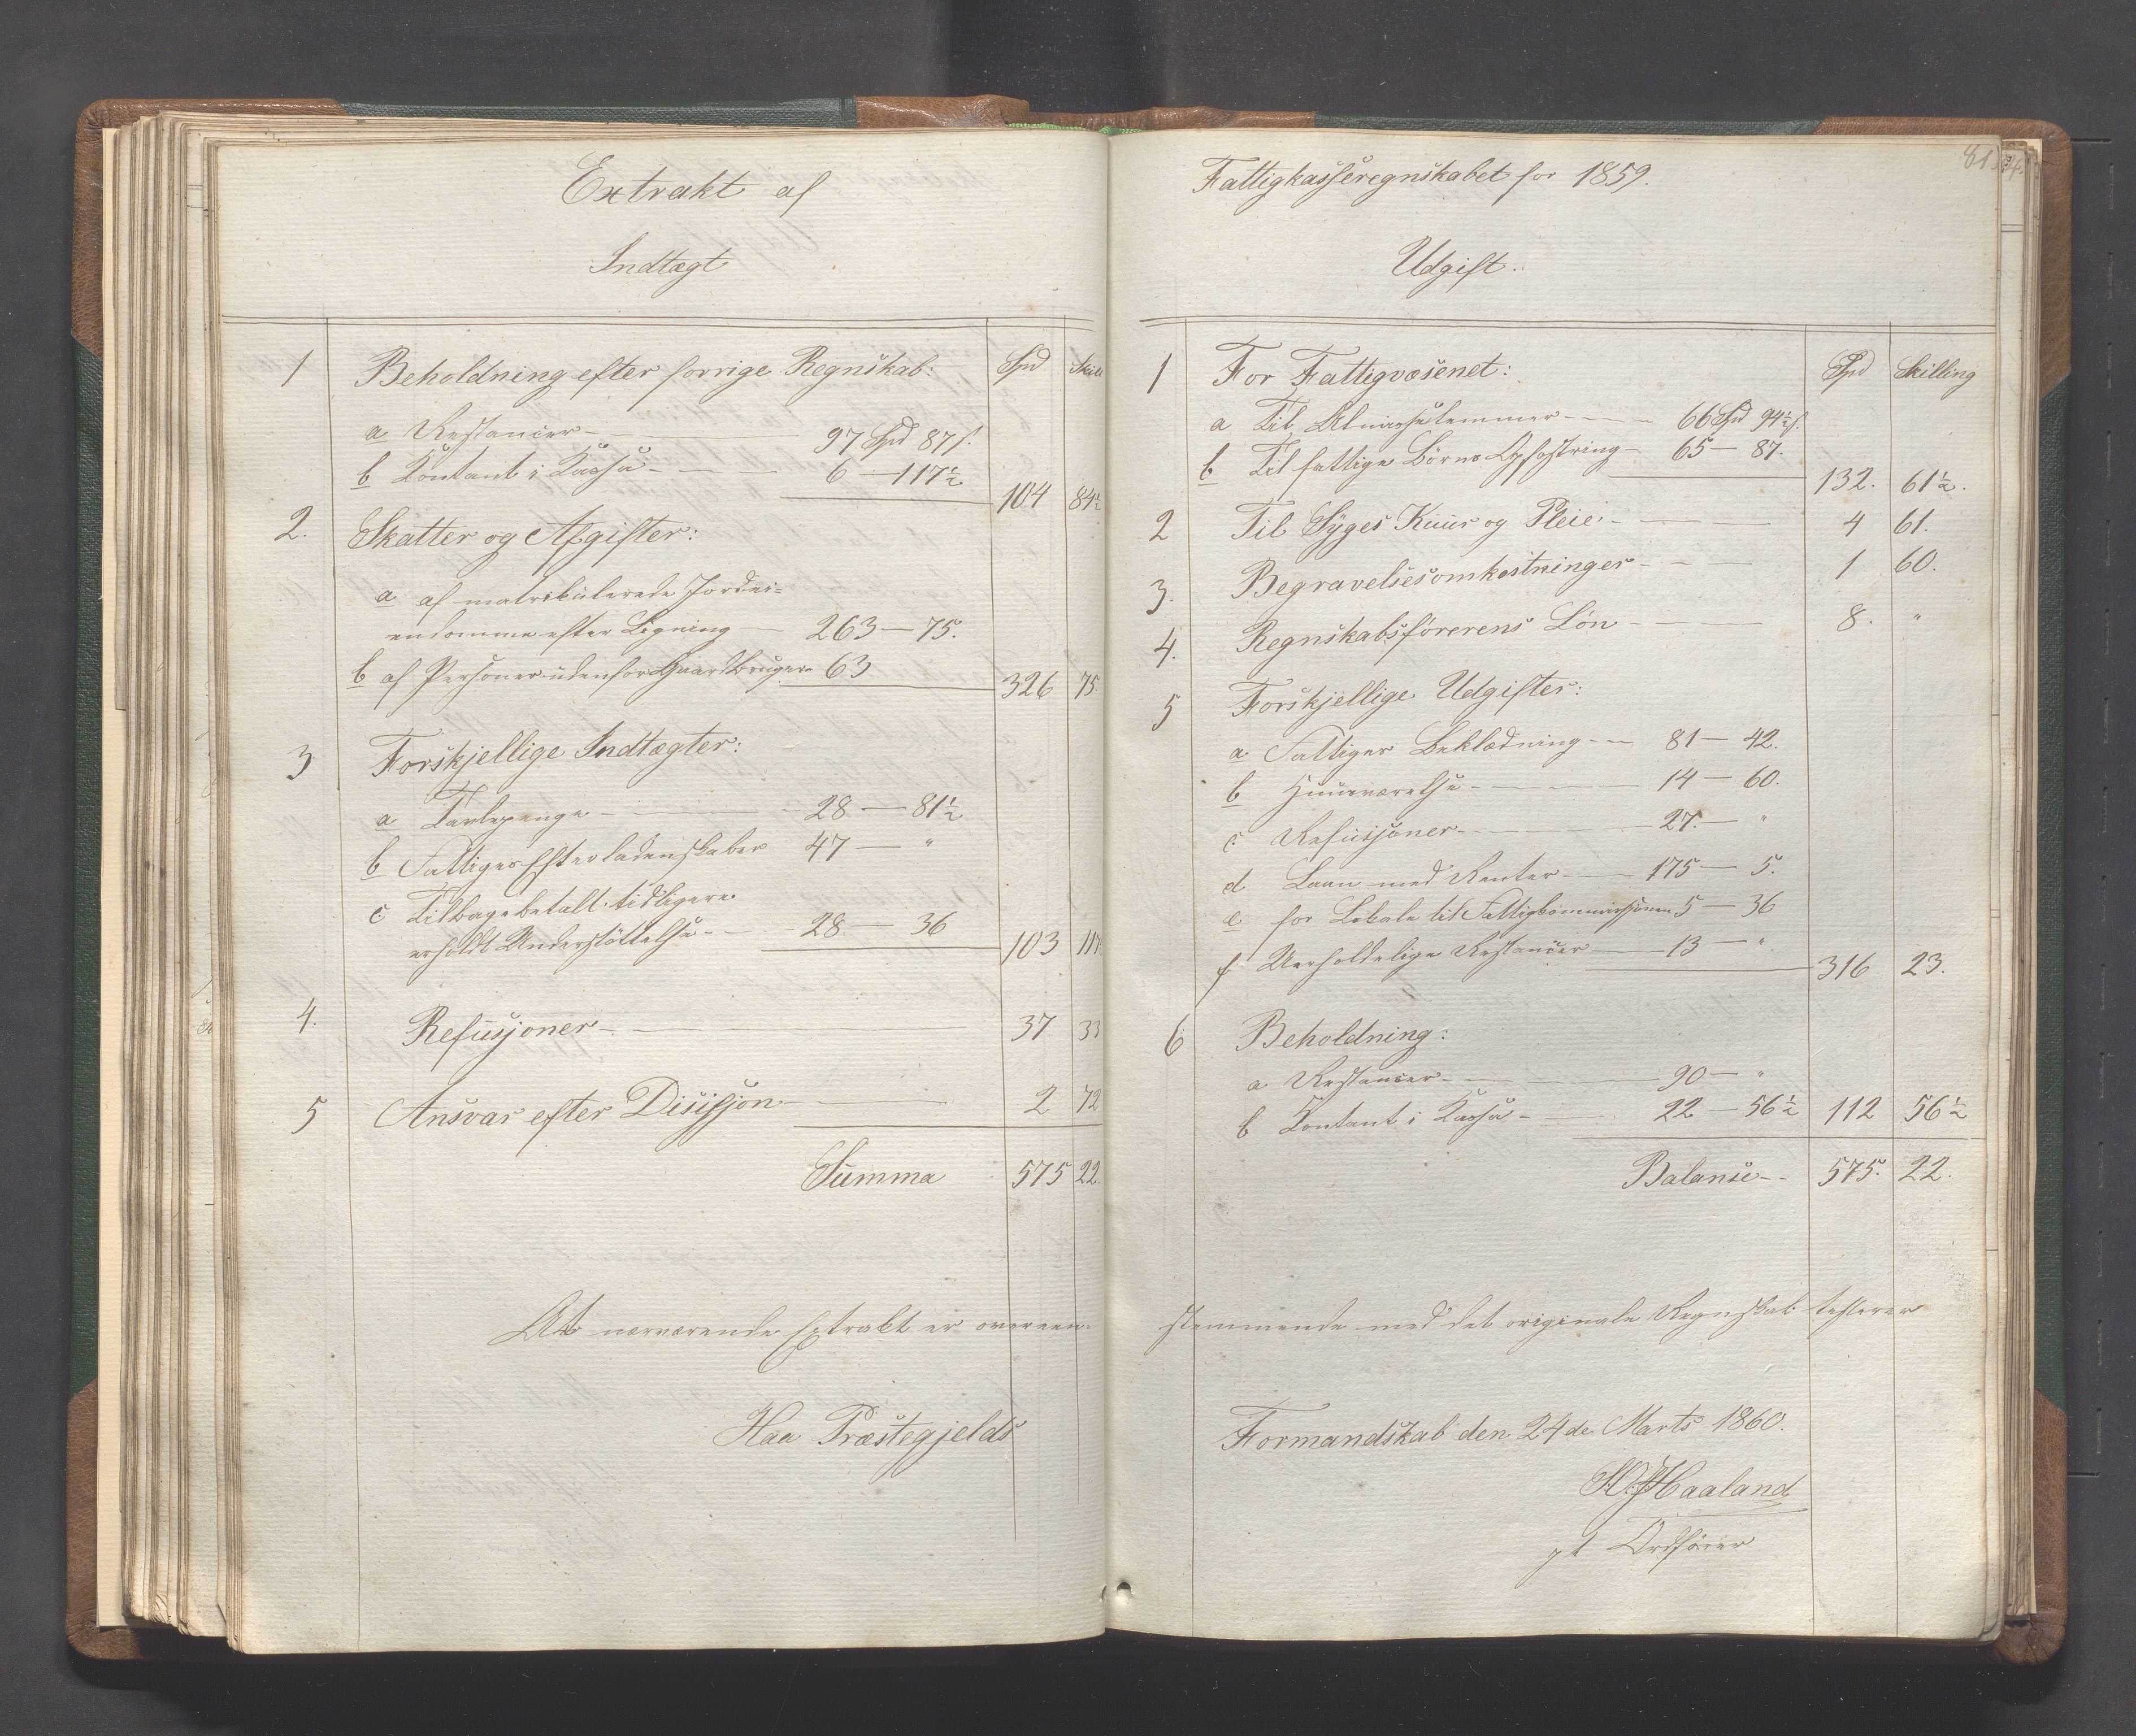 Extrakt af
Indtægt
Spd Skill
1 Beholdning efter forrige Regnskab:
a Restancer 97 Spd 87 s.
b Kontant i Kassa 6 — 117½
104 84½
2. Skatter og Afgifter:
a af matrikulerede Jordei=
endomme efter Ligning — 263 — 75.
b af Personer udenfor Gaardbruger 63
326 75.
3 Forskjellige Indtægter:
a Tavlepenge — 28 — 81½
b Fattiges Efterladenskaber 47 — "
c Tilbagebetalt tidligere
erholdt Understöttelse — 28 — 36
103 117
4. Refusjoner 37 33
5 Ansvar efter Disisjon 2 72
Summa 575 22.
At nærværende Extrakt er overeen-
Haa Præstegjelds
61
Fattigkasseregnskabet for 1859.
Udgift.
Spd Skilling
1 For Fattigvæsenet:
a Til Almisselemmer — 66 Spd 94½ s.
b Til fattige Börns Opfostring — 65 — 87.
132. 61½.
2 Til Syges Kuur og Pleie — 4 61.
3. Begravelsesomkostninger — 1 60.
4. Regnskabsførerens Løn — 8. "
5 Forskjellige Udgifter:
a Fattiges Beklædning — 81 — 42.
b Huusværelse — 14 — 60.
c Refusjoner — 27. — "
d Laan med Renter — 175 — 5.
e for Lokale til Fattigkommissionen 5 — 36
f Uerholdelige Restancer — 13 — "
316 23.
6 Beholdning:
a Restancer — 90 — "
b Kontant i Kassa — 22 — 56½ 112 56½
Balanse 575. 22.
stemmende med det originale Regnskab testerer
Formandskab den 24de Marts 1860.
Haaland
pt Ordfører